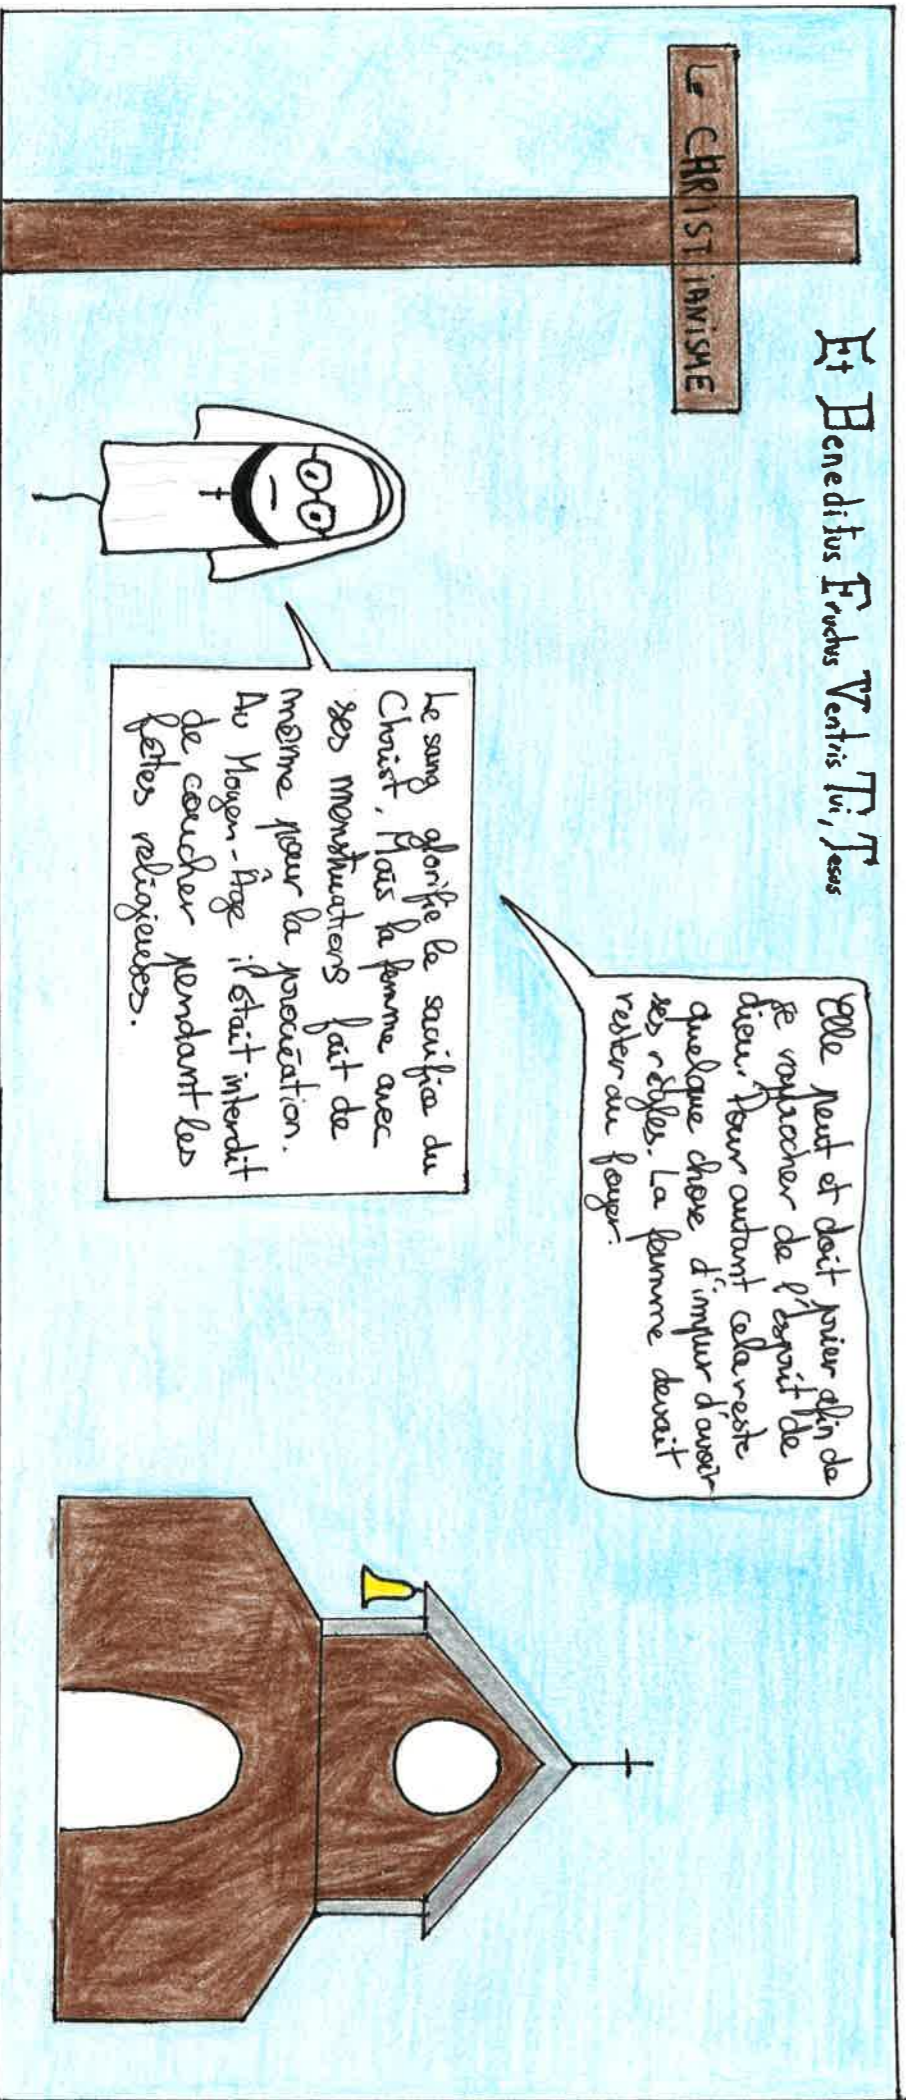 Et Beneditus Fructus Ventris Tui, Jesus
Le CHRISTIANISME
Elle peut et doit prier afin de
se rapprocher de l'esprit de
dieu. Pour autant cela reste
quelque chose d'impur d'avoir
ses règles. La femme devait
rester au foyer.
Le sang glorifie le sacrifice du
Christ. Mais la femme avec
ses menstruations fait de
même pour la procréation.
Au Moyen-Âge il était interdit
de coucher pendant les
fêtes religieuses.